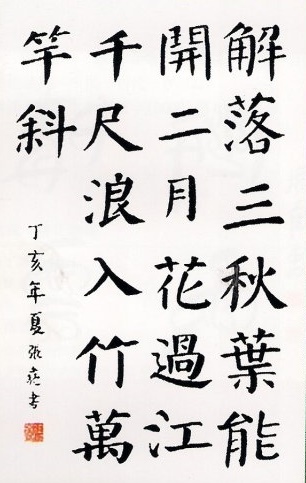 解落三秋葉能
開二月花過江
千尺浪入竹萬
竿斜
丁亥年夏張書